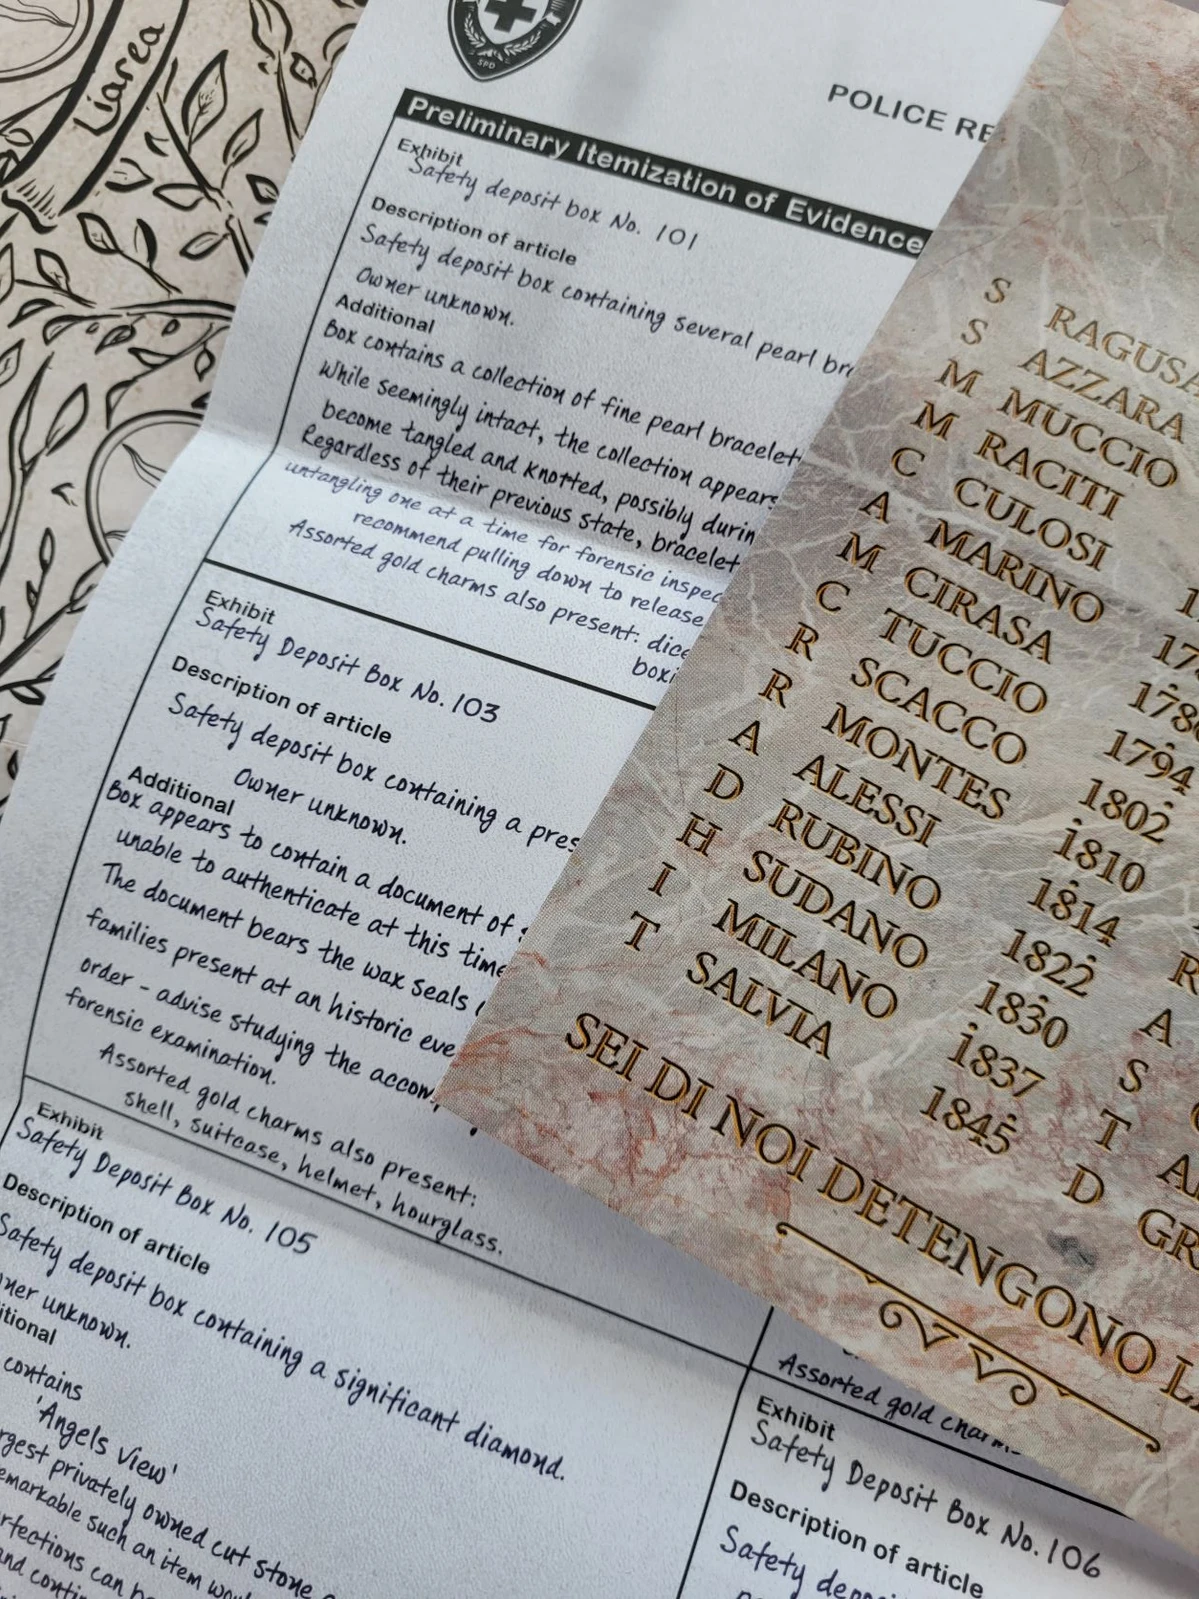 Liarea
SPD
POLICE
Preliminary Itemization of Evidence
Exhibit
Safety deposit box No. 101
Description of article
Safety deposit box containing several pearl
Owner unknown.
Additional
Box contains a collection of fine pearl bracelet
While seemingly intact, the collection appears
become tangled and knotted, possibly
Regardless of their previous state, bracelet
untangling one at a time for forensic
recommend pulling down to release
Assorted gold charms also present: dice
Exhibit
Safety Deposit Box No. 103
Description of article
Safety deposit box containing a
Owner unknown.
Additional
Box appears to contain a document of
unable to authenticate at this time
The document bears the wax seals
families present at an historic
order - advise studying the
forensic examination.
Assorted gold charms also present:
shell, suitcase, helmet, hourglass.
Exhibit
Safety Deposit Box No. 105
Description of article
Safety deposit box containing a significant diamond.
unknown.
contains
'Angels View'
privately owned cut stone
such an item
can
and
Assorted gold
Exhibit
Safety Deposit Box No. 106
Description of article
Safety
S RAGUSA
S AZZARA
M MUCCIO
M RACITI
C CULOSI
A MARINO
M CIRASA
C TUCCIO
R SCACCO 1794
R MONTES 1802
A ALESSI 1810
D RUBINO 1814
H SUDANO 1822 R
I MILANO 1830 A
T SALVIA 1837 S
1845 T
D
SEI DI NOI DETENGONO